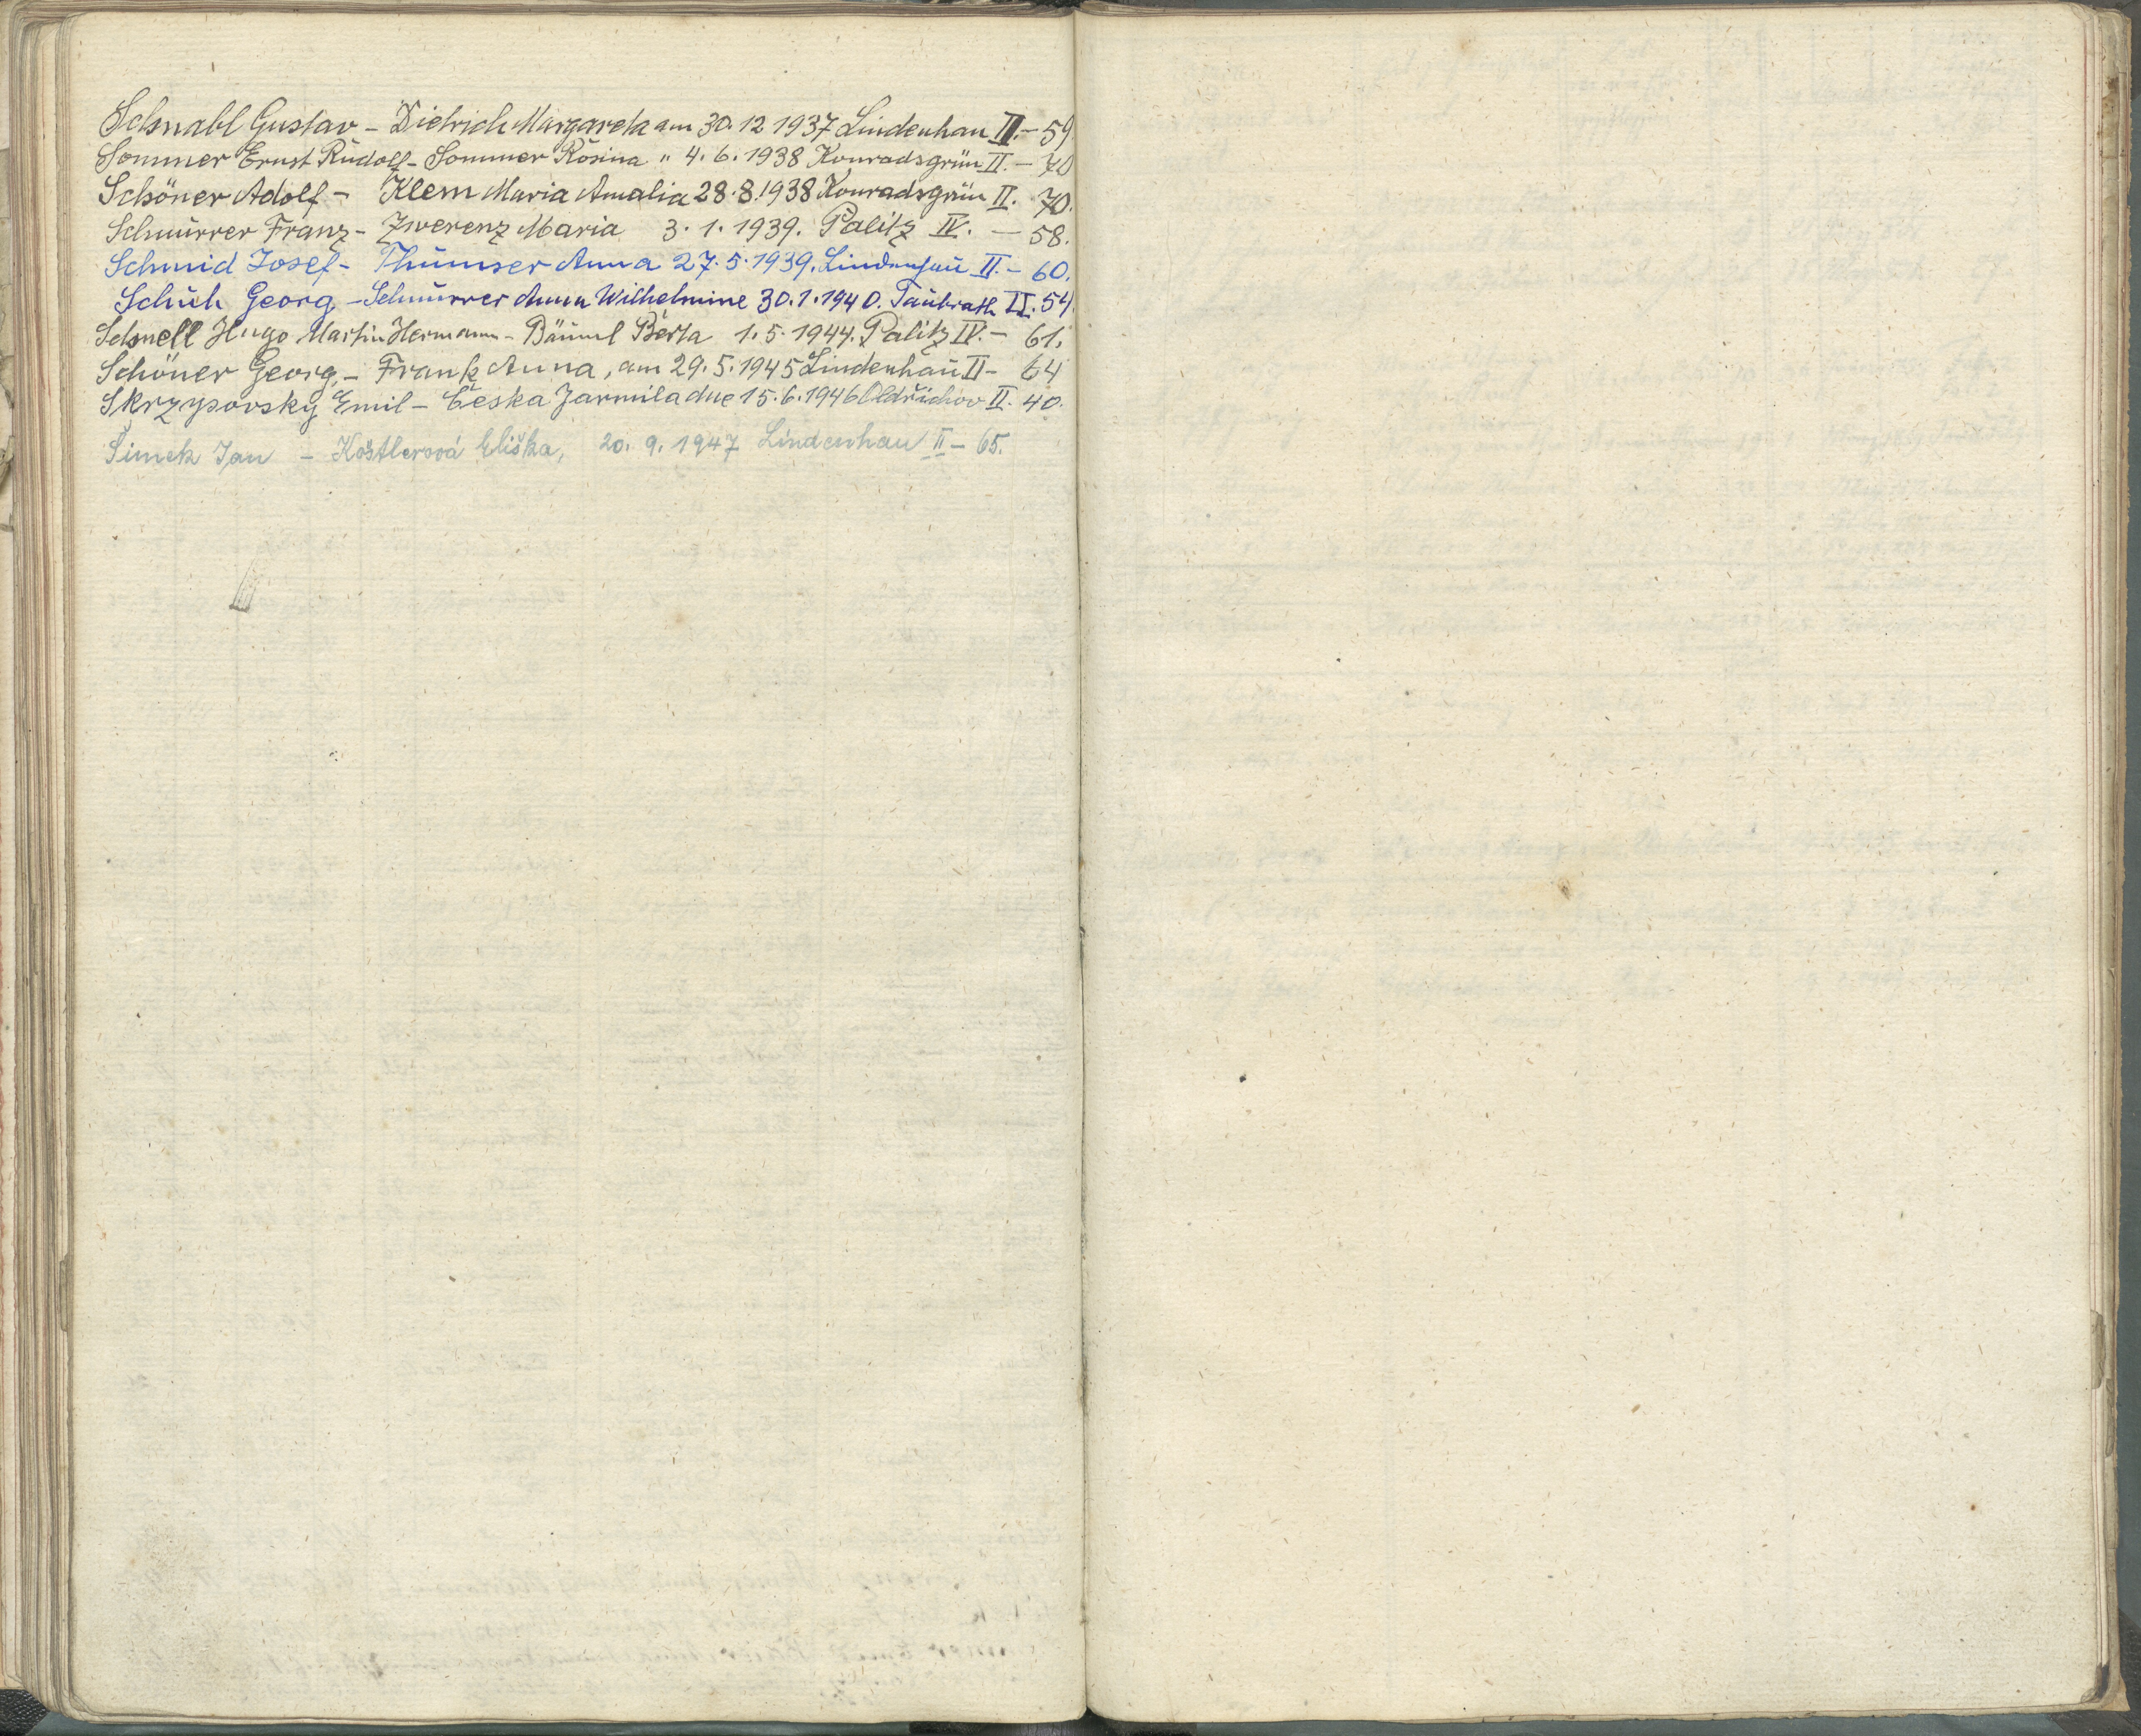 Schnabl Gustav - Dietrich Margareta am 30.12 1937 Lindenhau II. - 59
Sommer Ernst Rudolf - Sommer Rosina " 4. 6. 1938 Konradsgrün II. - 70
Schöner Adolf - Klem Maria Amalia 28.8.1938 Konradsgrün II. 70.
Schnurrer Franz - Zwerenz Maria 3. 1. 1939. Palitz IV. - 58.
Schmid Josef - Thumser Anna 27. 5. 1939. Lindenhau II. - 60.
Schuh Georg - Schnurrer Anna Wilhelmine 30.1.1940. Taubrath II. 54.
Schnell Hugo Martin Hermann - Bäuml Berta 1. 5. 1944. Palitz IV. - 61.
Schöner Georg, - Frank Anna, am 29. 5. 1945 Lindenhau II - 64
Skrzypovsky Emil - Česka Jarmila dne 15. 6. 1946 Oldřichov II. 40.
Šimek Jan - Köstlerová Eliška, 20. 9. 1947 Lindenhau II - 65.